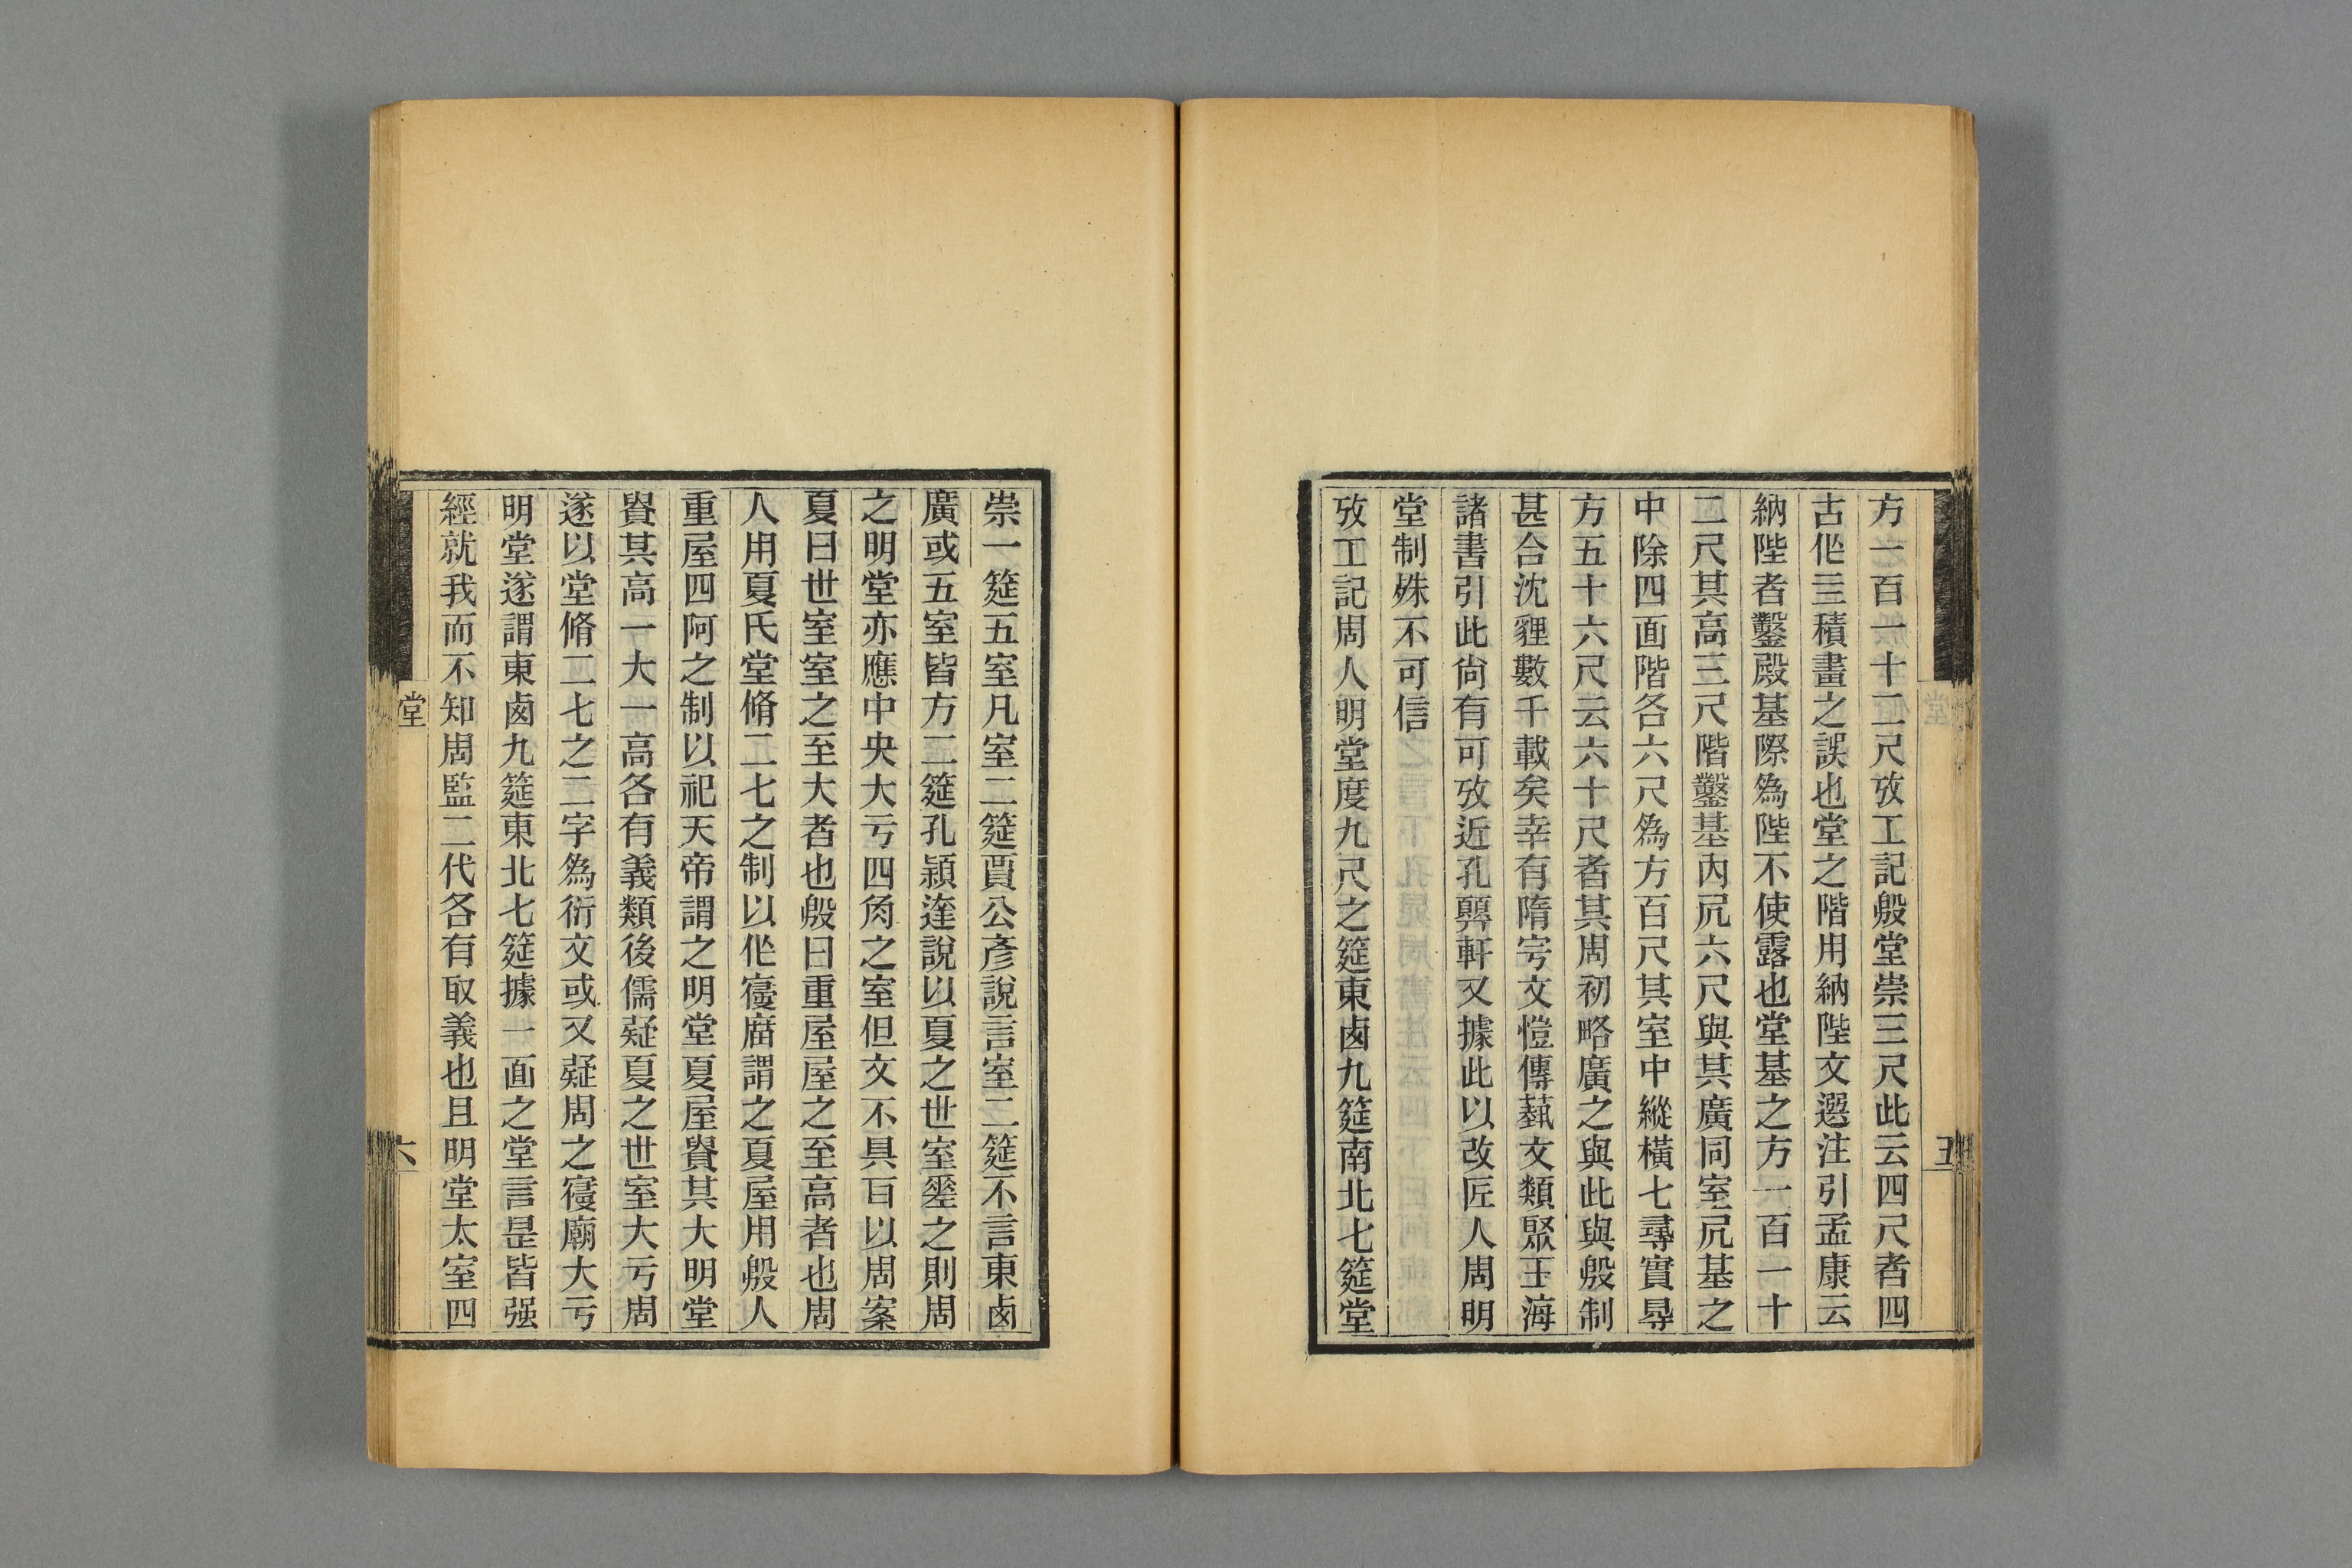 方一百一十二尺攷工記殷堂崇三尺此云四尺者四
古作亖積畫之誤也堂之階用納陛文選注引孟康云
納陛者鑿殿基際爲陛不使露也堂基之方一百一十
二尺其高三尺階鑿基內凥六尺與其廣同室凥基之
中除四面階各六尺爲方百尺其室中縱橫七尋實㝵
方五十六尺云六十尺者其周初略廣之與此與殷制
甚合沈貍數千載矣幸有隋宇文愷傳蓺文類聚玉海
諸書引此尙有可攷近孔㢲軒又據此以改匠人周明
堂制殊不可信
攷工記周人明堂度九尺之筵東卤九筵南北七筵堂
五
崇一筵五室凡室二筵賈公彥說言室二筵不言東卤
廣或五室皆方二筵孔穎達說以夏之世室㘴之則周
之明堂亦應中央大亏四角之室但文不具百以周案
夏曰世室室之至大者也殷曰重屋屋之至高者也周
人用夏氏堂脩二七之制以作寑庿謂之夏屋用殷人
重屋四阿之制以祀天帝謂之明堂夏屋貴其大明堂
貴其高一大一高各有義類後儒疑夏之世室大亏周
遂以堂脩二七之二字爲衍文或又疑周之寑廟大亏
明堂遂謂東卤九筵東北七筵據一面之堂言是皆强
經就我而不知周監二代各有取義也且明堂太室四
堂
六